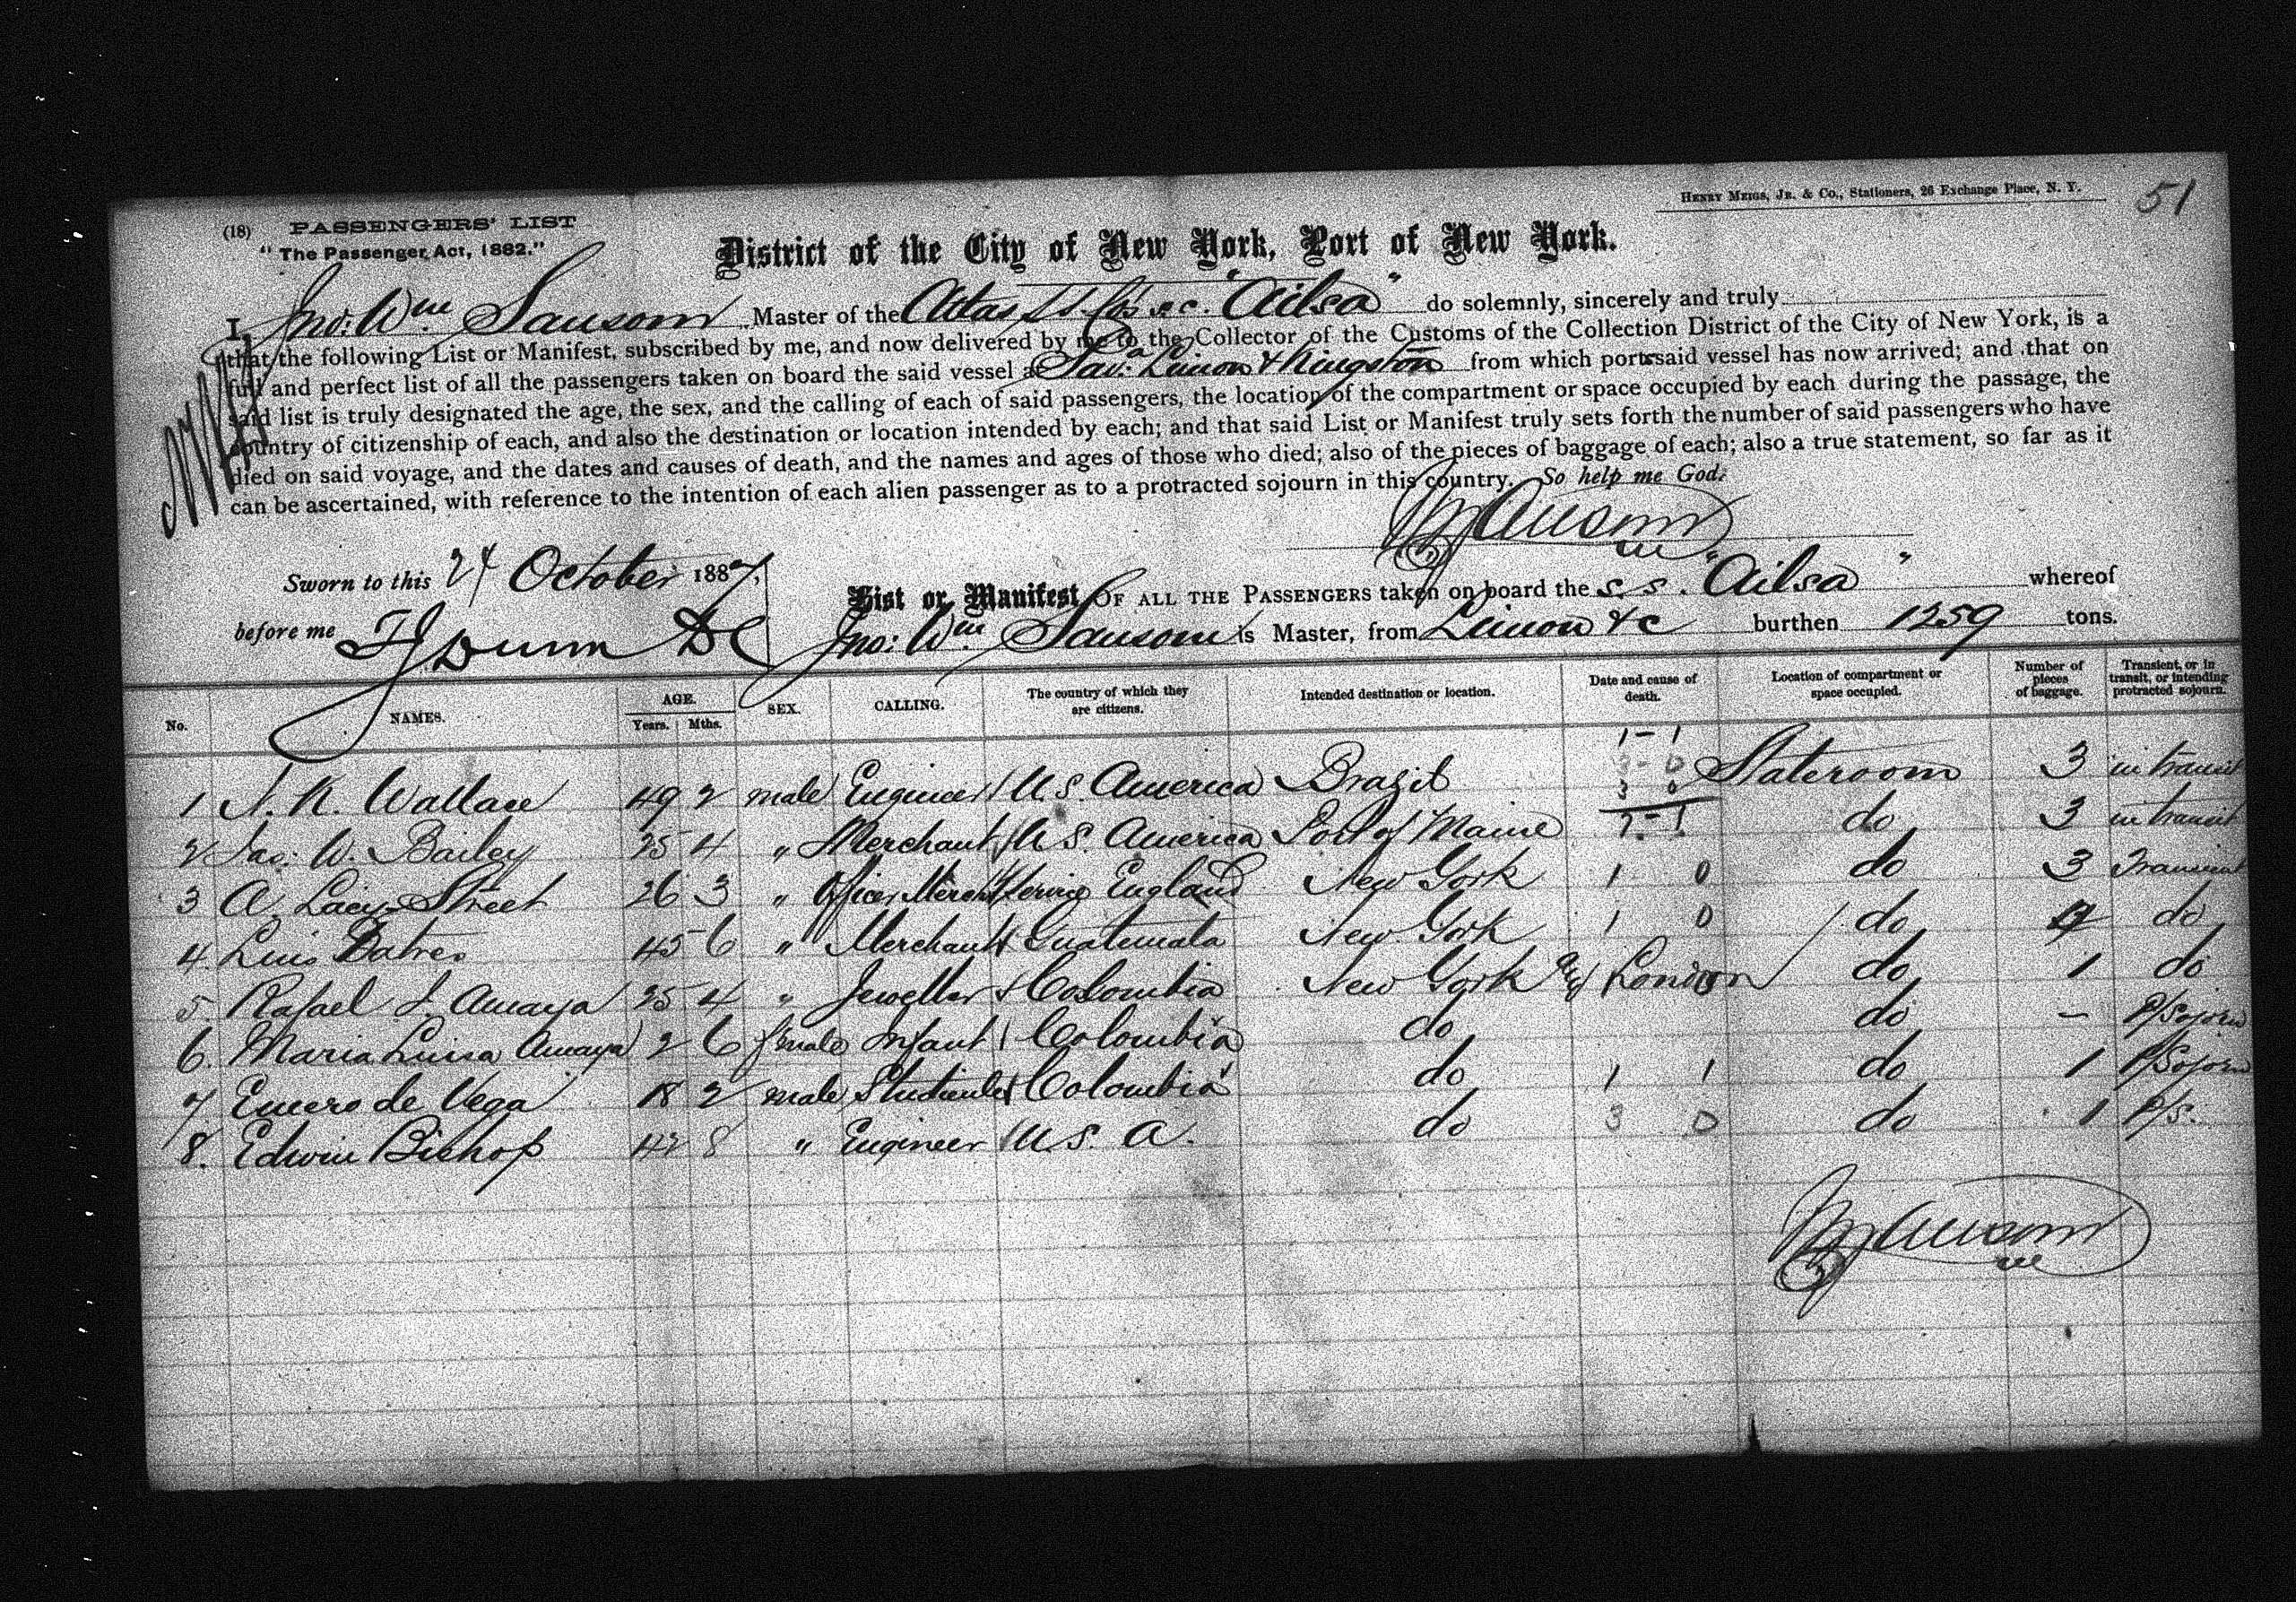 HENRY MEIGS, JR. & CO., Stationers, 26 Exchange Place, N. Y.
51
(18) PASSENGERS' LIST
"The Passenger Act, 1882."
District of the City of New York, Port of New York.
I, Jno: Wm. Sansom Master of the Atlas "Ailsa" do solemnly, sincerely and truly
that the following List or Manifest, subscribed by me, and now delivered by me to the Collector of the Customs of the Collection District of the City of New York, is a
full and perfect list of all the passengers taken on board the said vessel at Sav:a Limon & Kingston from which ports said vessel has now arrived; and that on
said list is truly designated the age, the sex, and the calling of each of said passengers, the location of the compartment or space occupied by each during the passage, the
country of citizenship of each, and also the destination or location intended by each; and that said List or Manifest truly sets forth the number of said passengers who have
died on said voyage, and the dates and causes of death, and the names and ages of those who died; also of the pieces of baggage of each; also a true statement, so far as it
can be ascertained, with reference to the intention of each alien passenger as to a protracted sojourn in this country. So help me God.
Sansom
Sworn to this 24 October 1887,
before me Dunn DC
List or Manifest OF ALL THE PASSENGERS taken on board the s. s. "Ailsa" whereof
Jno: Wm. Sansom is Master, from Limon &c burthen 1259 tons.
No. NAMES. AGE. Years. Mths. SEX. CALLING. The country of which they are citizens. Intended destination or location. Date and cause of death. Location of compartment or space occupied. Number of pieces of baggage. Transient, or in transit, or intending protracted sojourn.
1-1
3-0
3 0
7-1
1 Wallace 49 2 male Engineer U.S. America Brazil Stateroom 3 in transit
2 W. Bailey 35 4 " Merchant U.S. America Maine do 3 in transit
3 A. Lacy Street 26 3 " Officer England New York 1 0 do 3 Transient
4. Luis Batres 45 6 " Merchant Guatemala New York 1 0 do do
5. Rafael J. Amaya 35 4 " Jeweller Colombia New York London do 1 do
6. Maria Luisa Amaya 2 6 female Infant Colombia do do - P/Sojorn
7 de Vega 18 2 male Colombia do 1 1 do 1 P/Sojorn
8. Edwin Bishop 42 8 " Engineer U.S. A. do 3 0 do 1 P/S.
Sansom